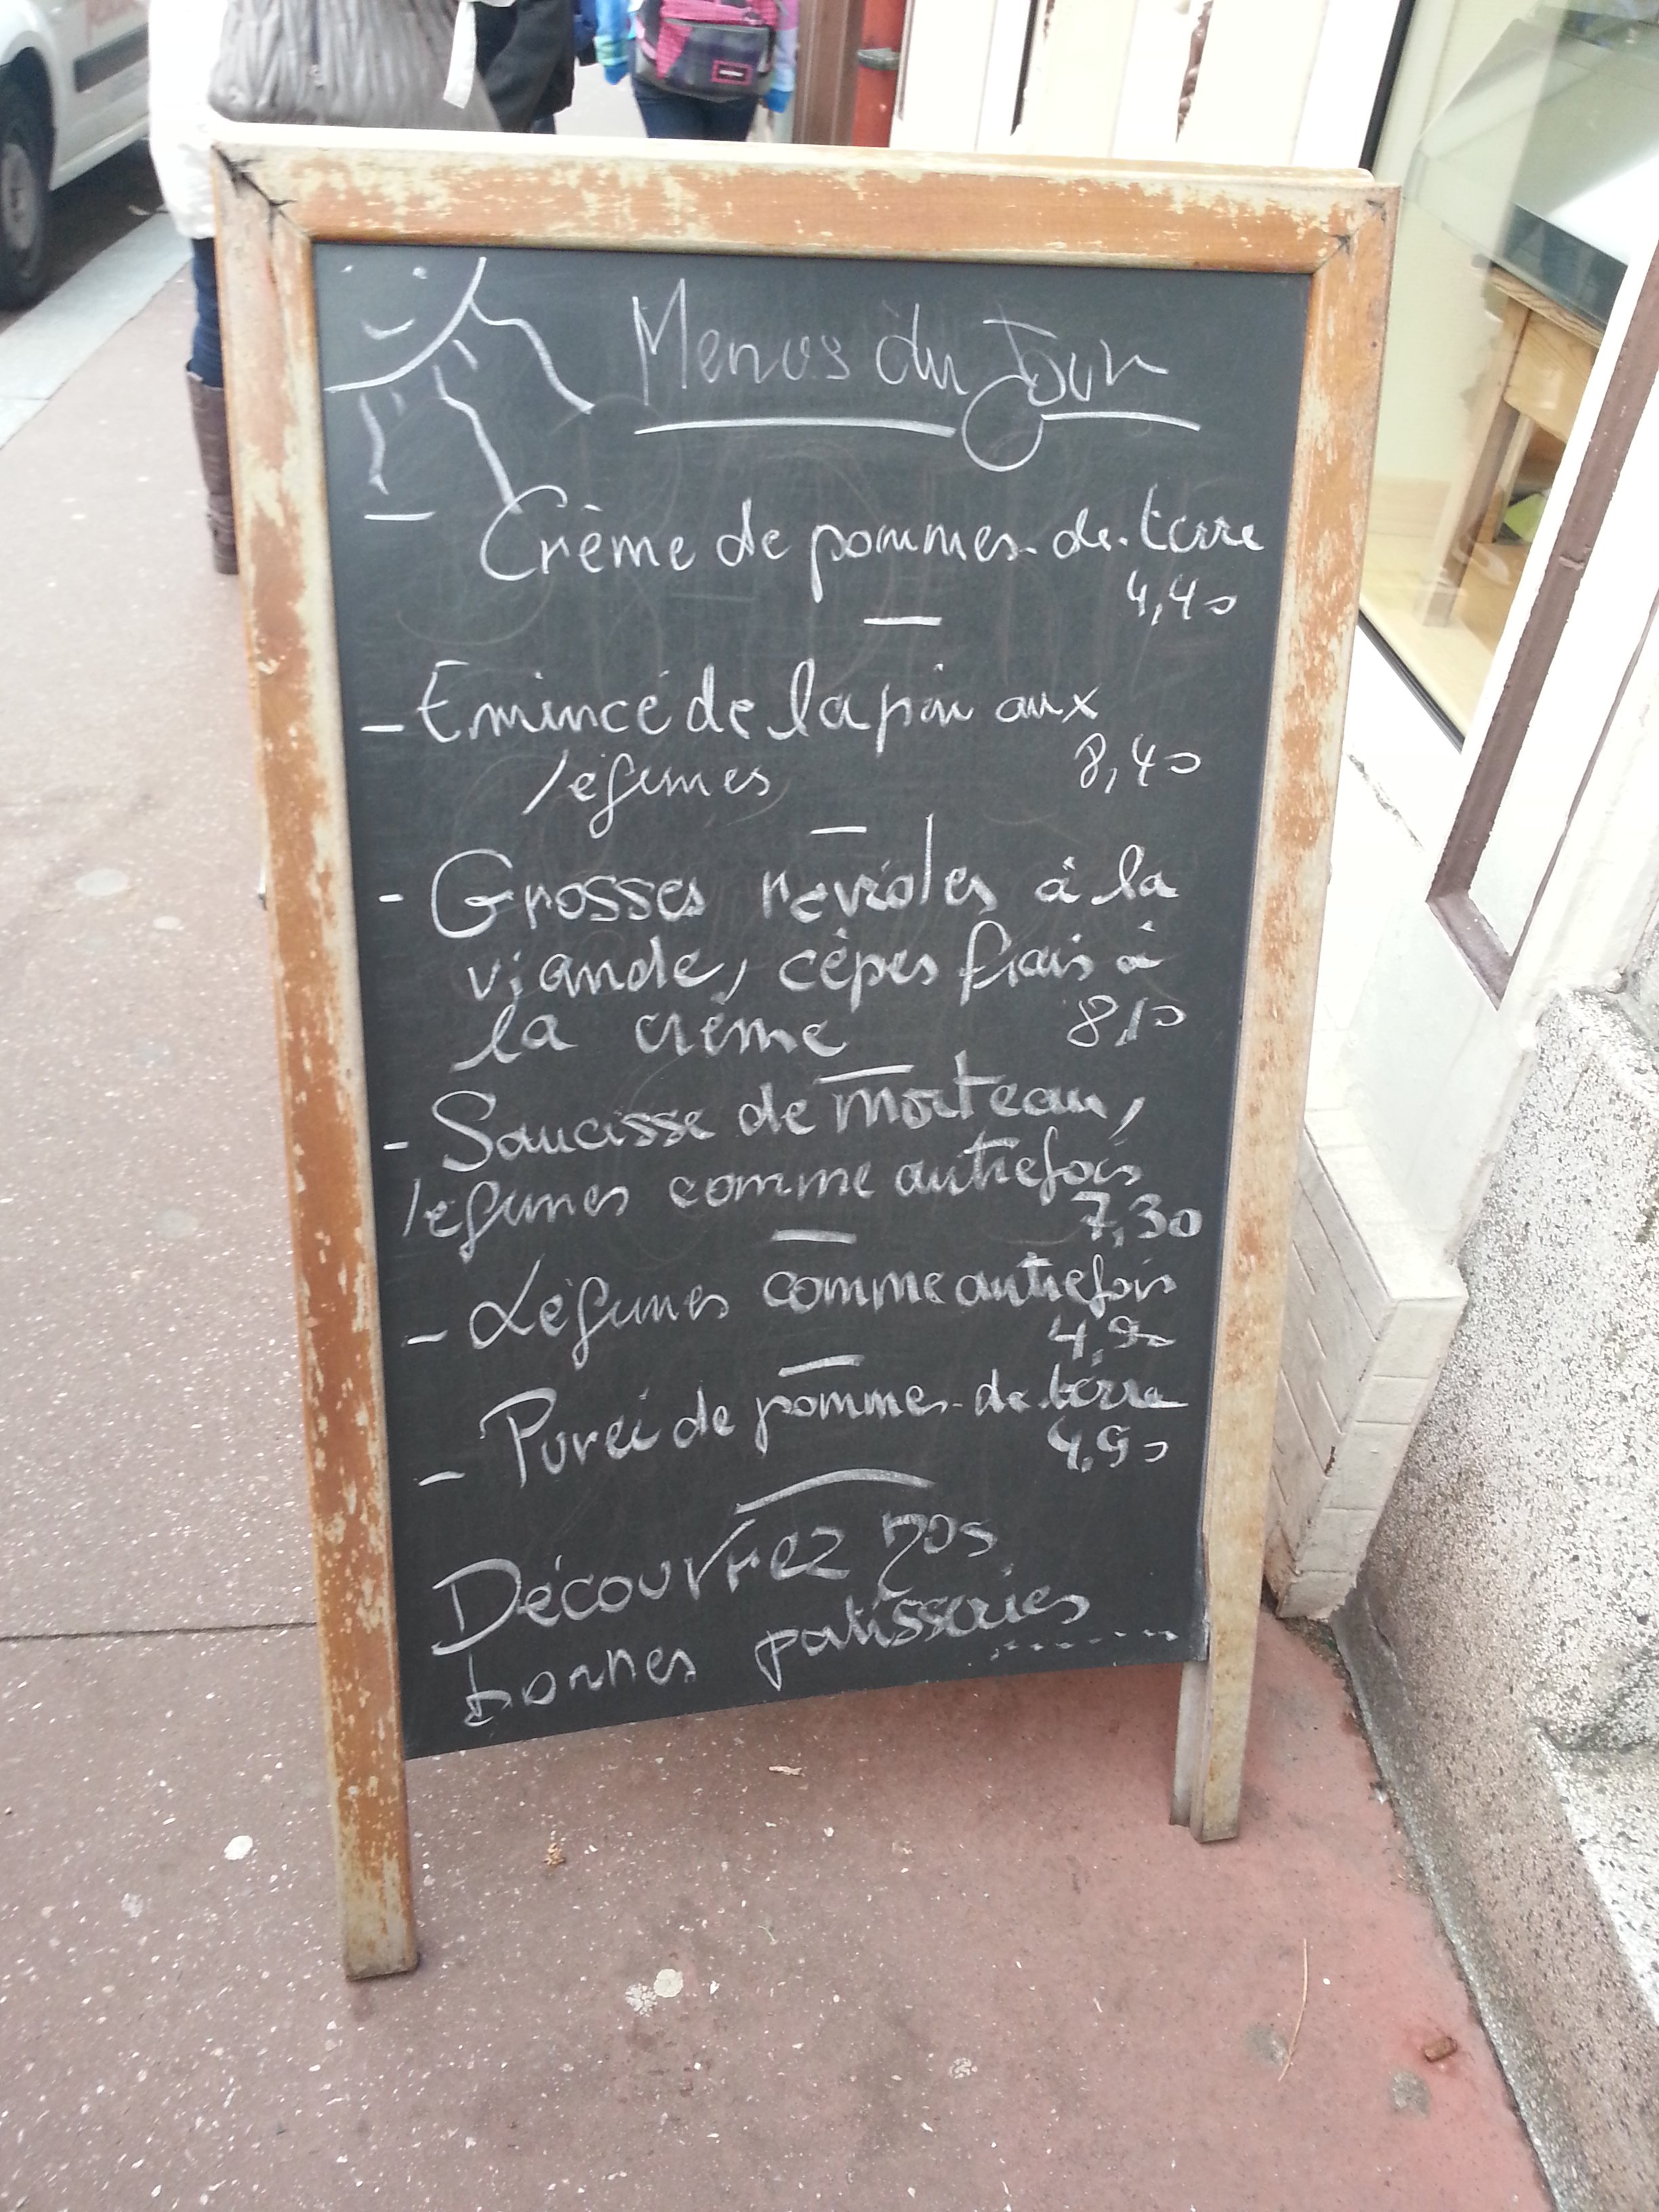 Menus du Jour
- Crème de pommes-de-terre
4,40
- Emincé de lapin aux
légumes 8,40
- Grosses ravioles à la
viande, cèpes frais à
la crème 8,10
- Saucisse de morteau,
légumes comme autrefois
7,30
- Légumes comme autrefois
4,90
- Purée de pommes-de terre
4,90
Découvrez nos
bonnes patisseries